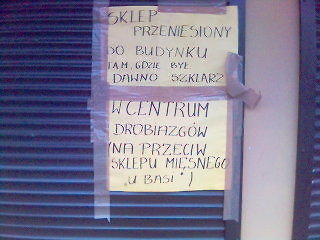 SKLEP
PRZENIESIONY
DO BUDYNKU
TAM, GDZIE BYŁ
DAWNO SZKLARZ
W CENTRUM
DROBIAZGÓW
(NA PRZECIW
SKLEPU MIĘSNEGO
„U BASI")